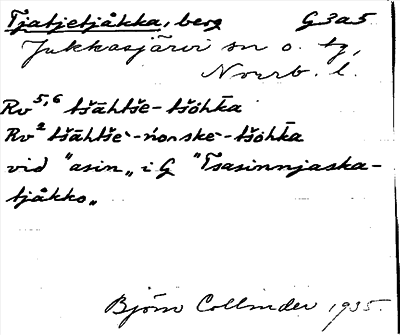 Tjatjetjåkka, berg G3a5
Jukkasjärvi sn o. tg,
Norrb. l.
Rv5,6 tšāhtše-tšŏhka
Rv2 tšāhtše-norske-tšŏhka
vid "asin„ i G "Tsasinnjaska-
tjåkko„
Björn Collinder 1935.